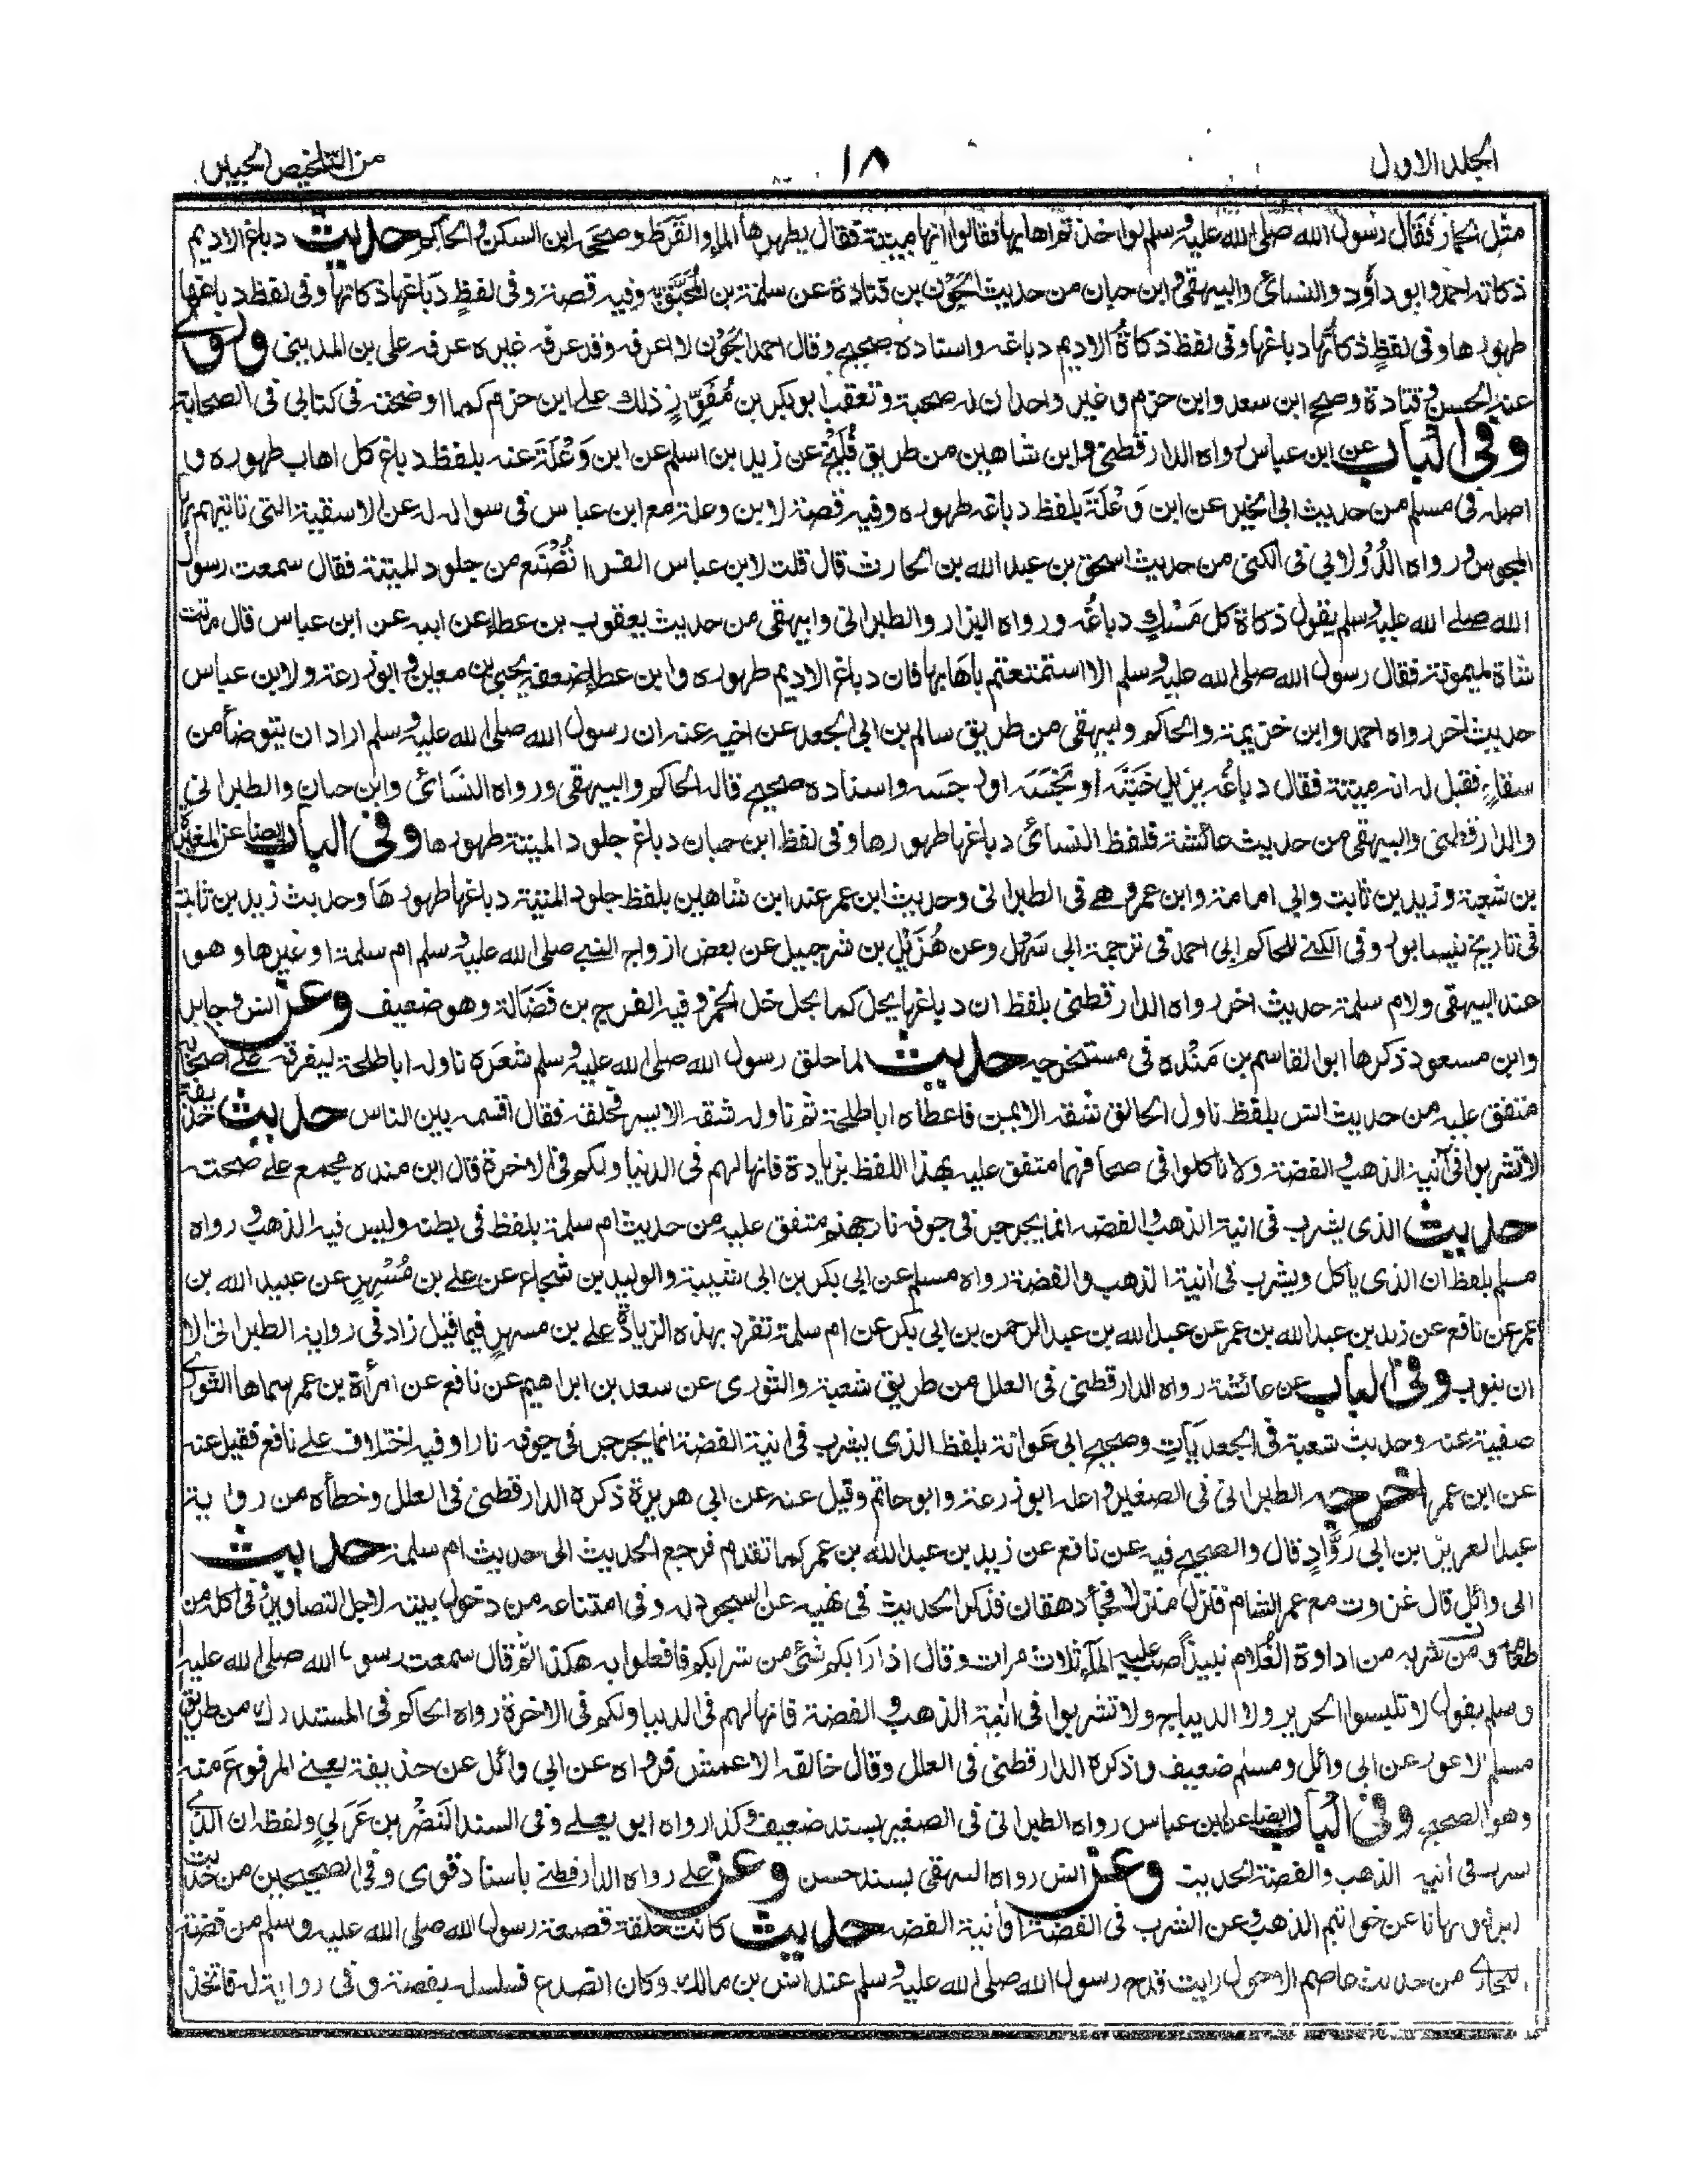 الجلد الاول
١٨
من التلخيص الحبير
مثل الحمار فقال رسول الله صلى الله عليه وسلم لو اخذتم اهابها فقالوا انها ميتة فقال يطهرها الماء والقرظ وصححه ابن السكن والحاكم حديث دباغ الاديم
ذكاته احمد وابو داؤد والنسائى والبيهقى وابن حبان من حديث الجون بن قتادة عن سلمة بن المحبق به وفيه قصة وفى لفظ دباغها ذكاتها وفى لفظ دباغها
طهورها وفى لفظ ذكاتها دباغها وفى لفظ ذكاة الاديم دباغه واسناده صحيح وقال احمد الجون لا اعرفه وقد عرفه غيره عرفه على بن المدينى وروى
عنه الحسن وقتادة وصحح ابن سعد وابن حزم وغير واحد ان له صحبة وتعقب ابو بكر بن مفوز ذلك على ابن حزم كما اوضحته فى كتابى فى الصحابة
وفى الباب عن ابن عباس رواه الدارقطنى وابن شاهين من طريق فليح عن زيد بن اسلم عن ابن وعلة عنه بلفظ دباغ كل اهاب طهوره و
اصله فى مسلم من حديث ابى الخير عن ابن وعلة بلفظ دباغه طهوره وفيه قصة لابن وعلة مع ابن عباس فى سواله له عن الاسقية التى تاتيهم بها
المجوس ورواه الدولابى فى الكنى من حديث اسحق بن عبد الله بن الحارث قال قلت لابن عباس الفراء تصنع من جلود الميتة فقال سمعت رسول
الله صلى الله عليه وسلم يقول ذكاة كل مسك دباغه ورواه البزار والطبرانى والبيهقى من حديث يعقوب بن عطاء عن ابيه عن ابن عباس قال ماتت
شاة لميمونة فقال رسول الله صلى الله عليه وسلم الا استمتعتم باهابها فان دباغ الاديم طهوره وابن عطاء ضعفه يحيى بن معين وابو زرعة ولابن عباس
حديث اخر رواه احمد وابن خزيمة والحاكم والبيهقى من طريق سالم بن ابى الجعد عن اخيه عنه ان رسول الله صلى الله عليه وسلم اراد ان يتوضأ من
سقاء فقيل له انه ميتة فقال دباغه يزيل خبثه او نجسه او رجسه واسناده صحيح قاله الحاكم والبيهقى ورواه النسائى وابن حبان والطبرانى
والدارقطنى والبيهقى من حديث عائشة فلفظ النسائى دباغها طهورها وفى لفظ ابن حبان دباغ جلود الميتة طهورها وفى الباب ايضا عن المغيرة
بن شعبة وزيد بن ثابت وابى امامة وابن عمر وهى فى الطبرانى وحديث ابن عمر عند ابن شاهين بلفظ جلود الميتة دباغها طهورها وحديث زيد بن ثابت
فى تاريخ نيسابور وفى الكنى للحاكم ابى احمد فى ترجمة ابى سهل وعن هزيل بن شرحبيل عن بعض ازواج النبى صلى الله عليه وسلم ام سلمة او غيرها وهو
عند البيهقى ولام سلمة حديث اخر رواه الدارقطنى بلفظ ان دباغها يحل كما يحل خل الخمر وفيه الفرج بن فضالة وهو ضعيف وعن انس وجابر
وابن مسعود ذكرها ابو القاسم بن منده فى مستخرجه حديث لما حلق رسول الله صلى الله عليه وسلم شعره ناوله ابا طلحة ليفرقه على اصحابه
متفق عليه من حديث انس بلفظ ناول الحالق شقه الايمن فاعطاه ابا طلحة ثم ناوله شقه الايسر فحلقه فقال اقسمه بين الناس حديث حذيفة
لا تشربوا فى آنية الذهب والفضة ولا تاكلوا فى صحافهما متفق عليه بهذا اللفظ بزيادة فانها لهم فى الدنيا ولكم فى الاخرة قال ابن منده مجمع على صحته
حديث الذى يشرب فى انية الذهب والفضه انما يجرجر فى جوفه نار جهنم متفق عليه من حديث ام سلمة بلفظ فى بطنه وليس فيه الذهب ورواه
مسلم بلفظ ان الذى ياكل ويشرب فى انية الذهب والفضة رواه مسلم عن ابى بكر بن ابى شيبة والوليد بن شجاع عن على بن مسهر عن عبيد الله بن
عمر عن نافع عن زيد بن عبد الله بن عمر عن عبد الله بن عبد الرحمن بن ابى بكر عن ام سلمة تفرد بهذه الزيادة على بن مسهر فيما قيل زاد فى رواية الطبرانى الا
ان يتوب وفى الباب عن عائشة رواه الدارقطنى فى العلل من طريق شعبة والثورى عن سعد بن ابراهيم عن نافع عن امرأة بن عمر سماها الثورى
صفية عنه وحديث شعبة فى الجعديات وصحيح ابى عوانة بلفظ الذى يشرب فى انية الفضة انما يجرجر فى جوفه نارا وفيه اختلاف على نافع فقيل عنه
عن ابن عمر اخرجه الطبرانى فى الصغير واعله ابو زرعة وابو حاتم وقيل عنه عن ابى هريرة ذكره الدارقطنى فى العلل وخطأه من رواية
عبد العزيز ابن ابى رواد قال والصحيح فيه عن نافع عن زيد بن عبد الله بن عمر كما تقدم فرجع الحديث الى حديث ام سلمة حديث
ابى وائل قال غزوت مع عمر الشام فنزل منزلا فجاء دهقان فذكر الحديث فى نهيه عن السجود له وفى امتناعه من دخول بيته لاجل التصاوير وفى اكله من
طعامه ومن شربه من اداوة الغلام نبيذا صب عليه الماء ثلاث مرات وقال اذا رابكم شئ من شرابكم فافعلوا به هكذا ثم قال سمعت رسول الله صلى الله عليه
وسلم يقول لا تلبسوا الحرير ولا الديباج ولا تشربوا فى انية الذهب والفضة فانها لهم فى الدنيا ولكم فى الاخرة رواه الحاكم فى المستدرك من طريق
مسلم الاعور عن ابى وائل ومسلم ضعيف وذكره الدارقطنى فى العلل وقال خالفه الاعمش فرواه عن ابى وائل عن حذيفة يعنى المرفوع منه
وهو الصحيح وفى الباب ايضا عن ابن عباس رواه الطبرانى فى الصغير بسند ضعيف وكذا رواه ابو يعلى وفى السند النضر بن عربى ولفظه ان الذى
يشرب فى أنية الذهب والفضة الحديث وعن انس رواه البيهقى بسند حسن وعن على رواه الدارقطنى باسناد قوى وفى الصحيحين من حديث
البراء نهانا عن خواتيم الذهب وعن الشرب فى الفضة او أنية الفضه حديث كانت حلقة قصعة رسول الله صلى الله عليه وسلم من فضة
البخارى من حديث عاصم الاحول رايت قدح رسول الله صلى الله عليه وسلم عند انس بن مالك وكان انصدع فسلسله بفضة وفى رواية له فاتخذ